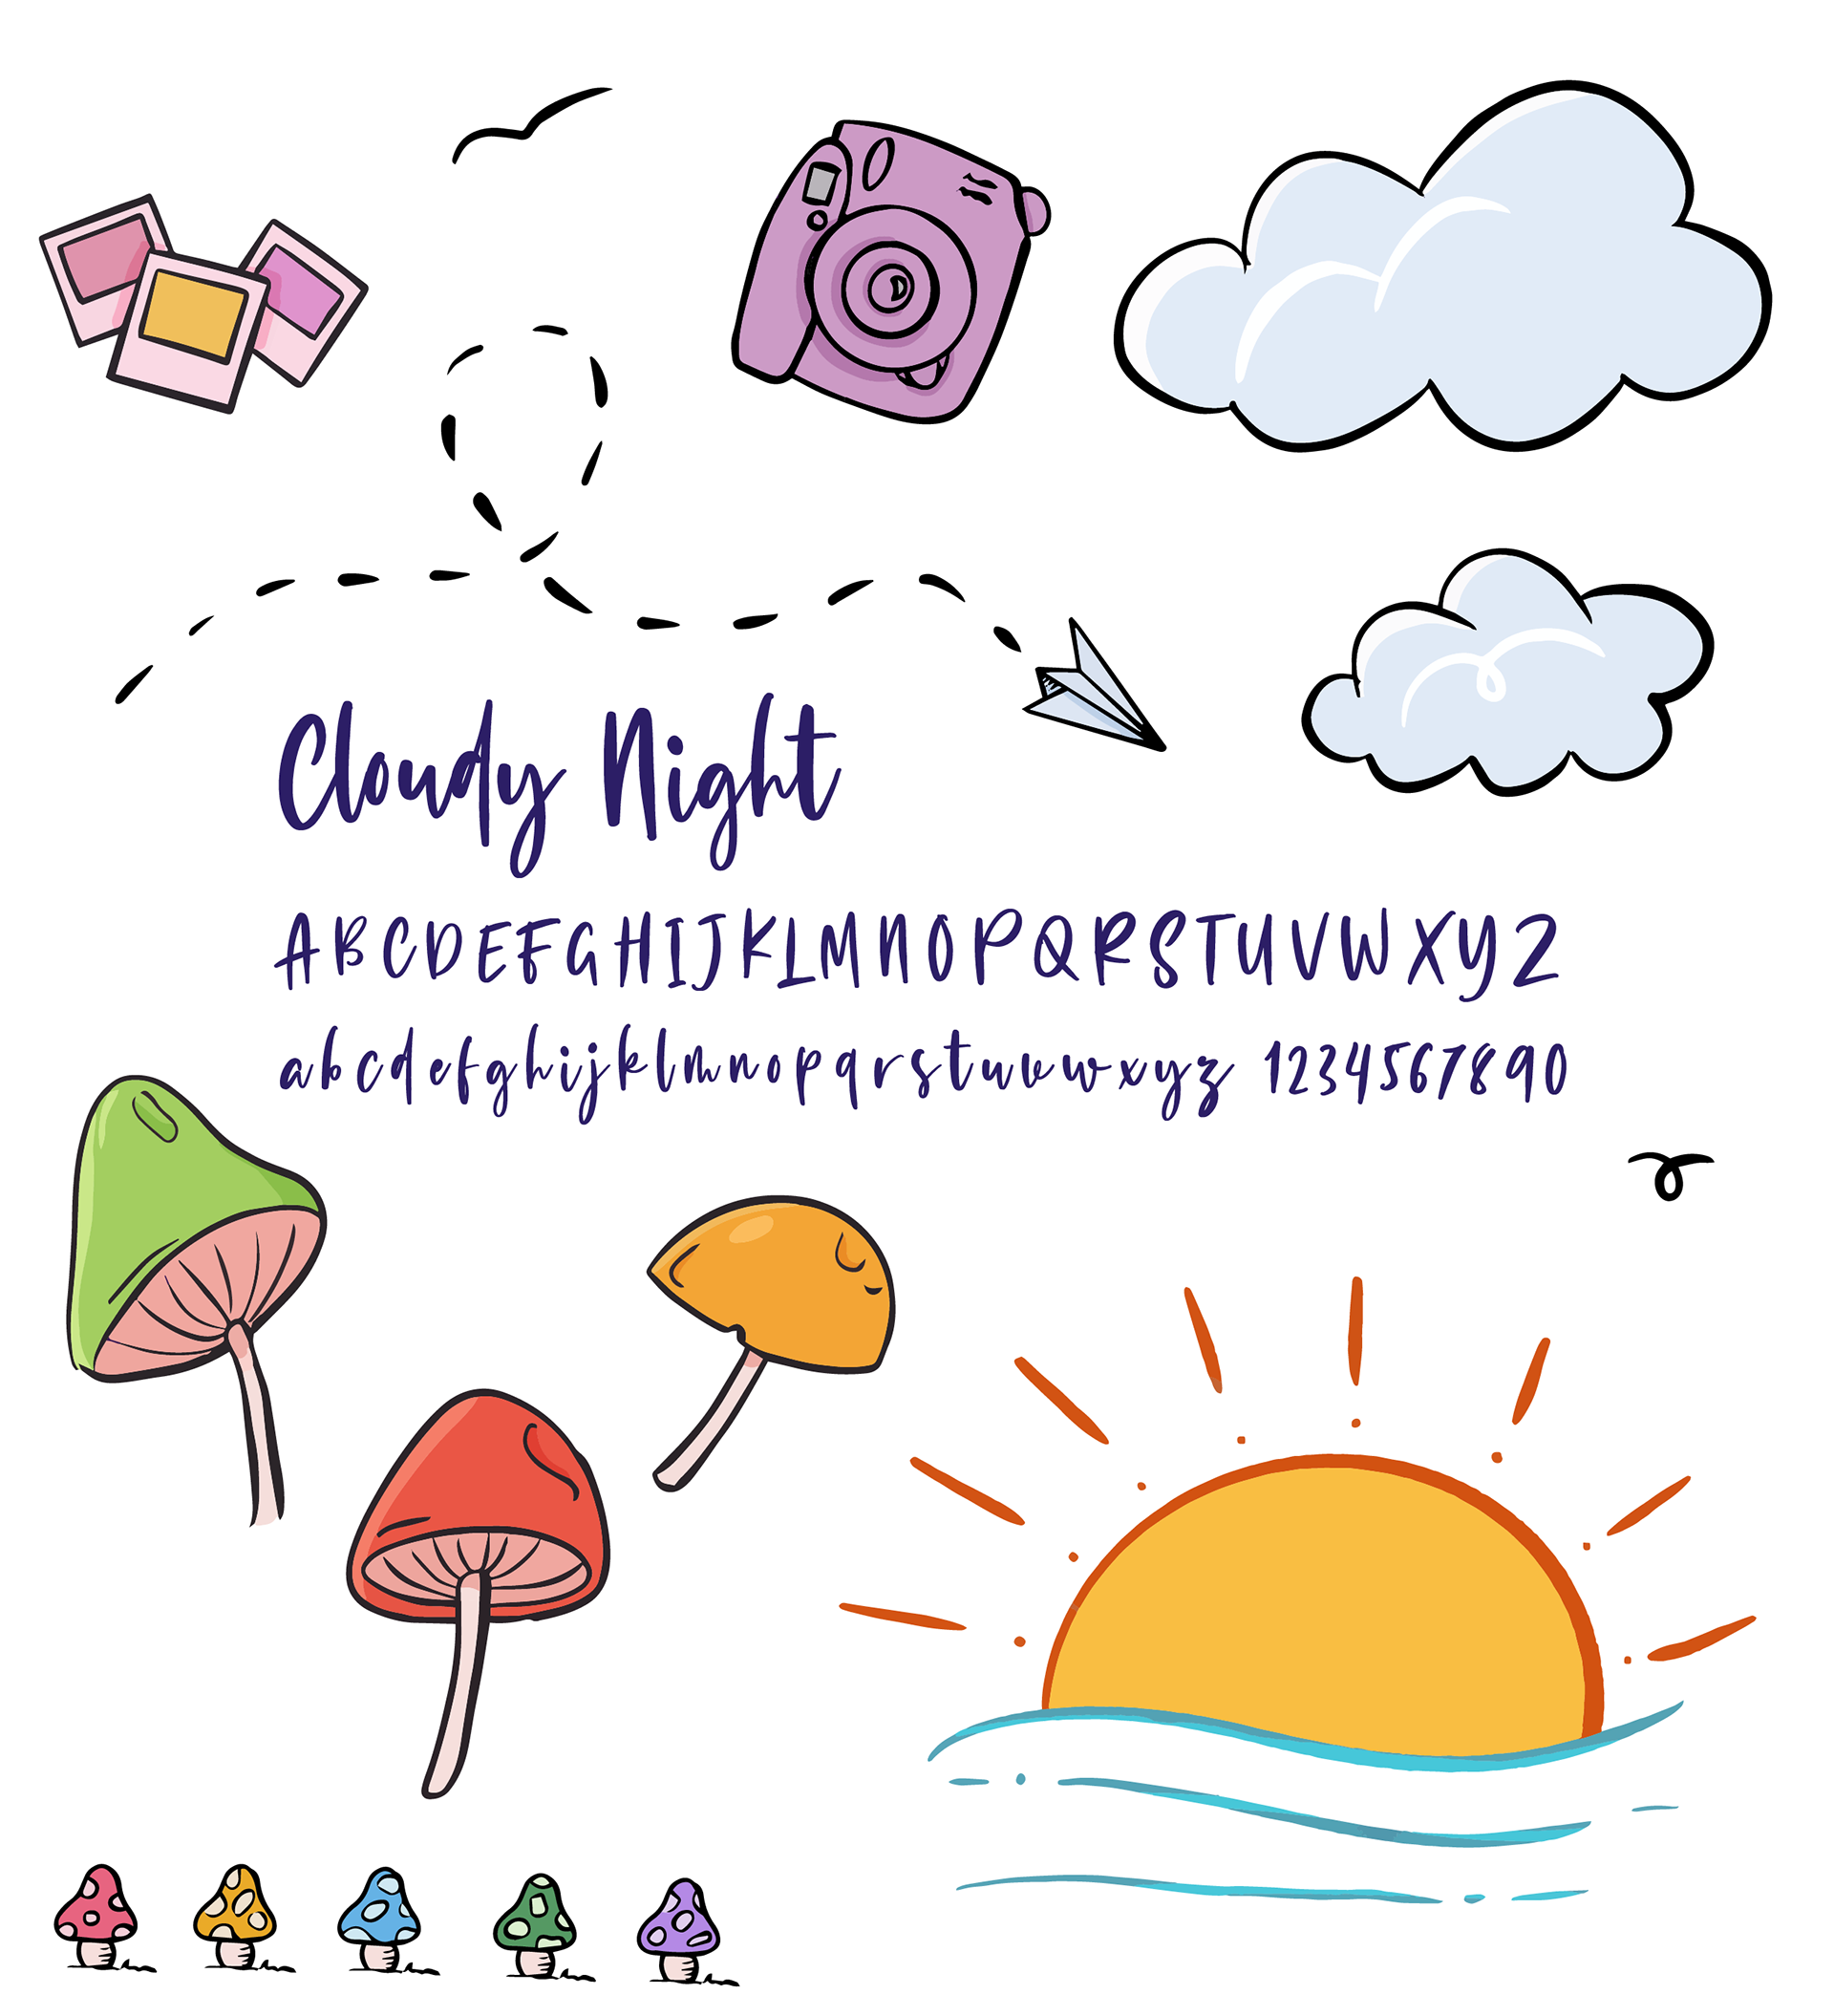 Cloudy Night
ABCDEFGHIJKLMNOPQRSTUVWXYZ
abcdefghijklmnopqrstuvwxyz 1234567890